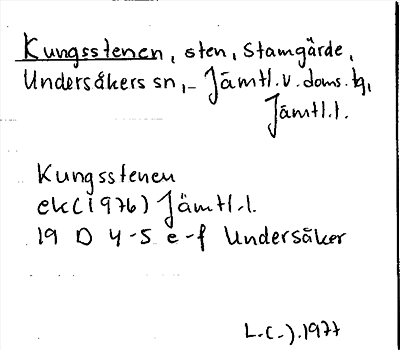 Kungsstenen, sten, Stamgärde,
Undersåkers sn, Jämtl.v. doms.tg,
Jämtl.l.
Kungsstenen
ek(1976) Jämtl.l.
19 D 4-5 e-f Undersåker
L.C-).1977